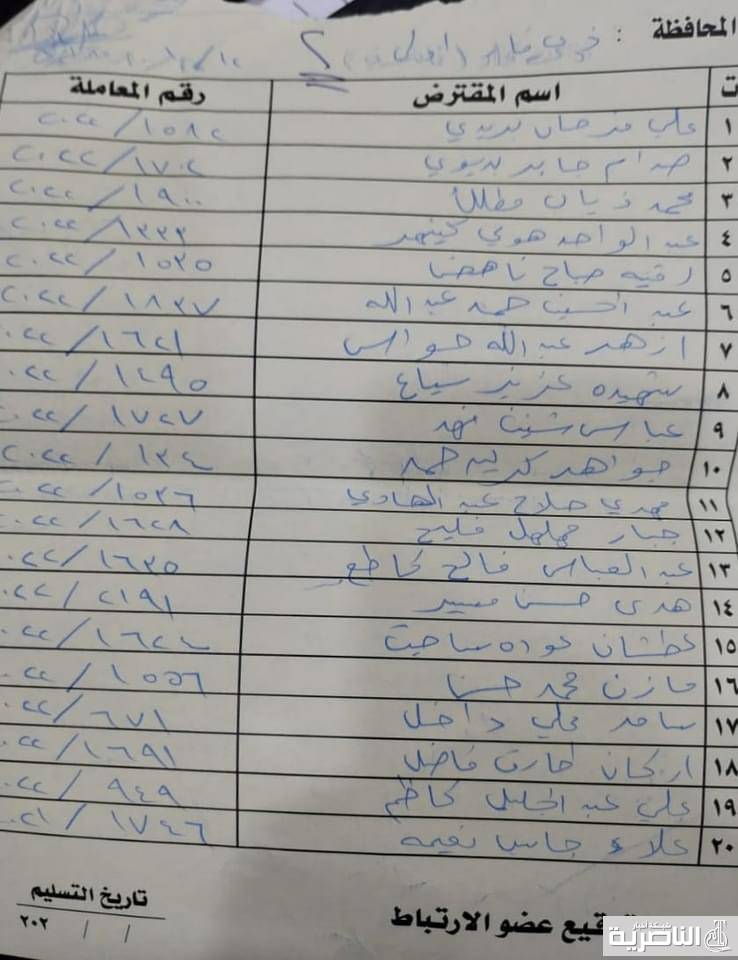 المحافظة :
ت اسم المقترض رقم المعاملة
١ علي فرحان بريدي ١٥٨٢ / ٢٠٢٢
٢ صدام جابر بديوي ١٧٠٢ / ٢٠٢٢
٣ محمد ذياب ١٩٠٠ / ٢٠٢٢
٤ عبد الواحد هوي ١٣٣٣ / ٢٠٢٢
٥ رقيه صباح ناهض ١٥٣٥ / ٢٠٢٢
٦ عبد الحسين حمد عبد الله ١٨٣٧ / ٢٠٢٢
٧ ازهر عبد الله حواس ١٦٢١ / ٢٠٢٢
٨ شهيده عزيز شياع ١٤٩٥ / ٢٠٢٢
٩ عباس شنيت فهد ١٧٢٧ / ٢٠٢٢
١٠ جواهر كريم حمد ١٣٤ / ٢٠٢٢
١١ مهدي صلاح عبد الهادي ١٥٣٦ / ٢٠٢٢
١٢ جبار مهلهل فليح ١٦٢٨ / ٢٠٢٢
١٣ عبد العباس فالح كاطع ١٦٣٥ / ٢٠٢٢
١٤ هدى حسن ٢١٩١ / ٢٠٢٢
١٥ عطشان عوده ساجت ١٦٤٤ / ٢٠٢٢
١٦ مازن محمد حسن ١٥٥٦ / ٢٠٢٢
١٧ سامر علي داخل ٦٧١ / ٢٠٢٢
١٨ اريحان طارق فاضل ١٦٩١ / ٢٠٢٢
١٩ علي عبد الجليل كاظم ٩٤٩ / ٢٠٢٢
٢٠ علاء جاسب نعيمه ١٧٤٦ / ٢٠٢١
توقيع عضو الارتباط
تاريخ التسليم
/ / ٢٠٢
شبكة أخبار الناصرية